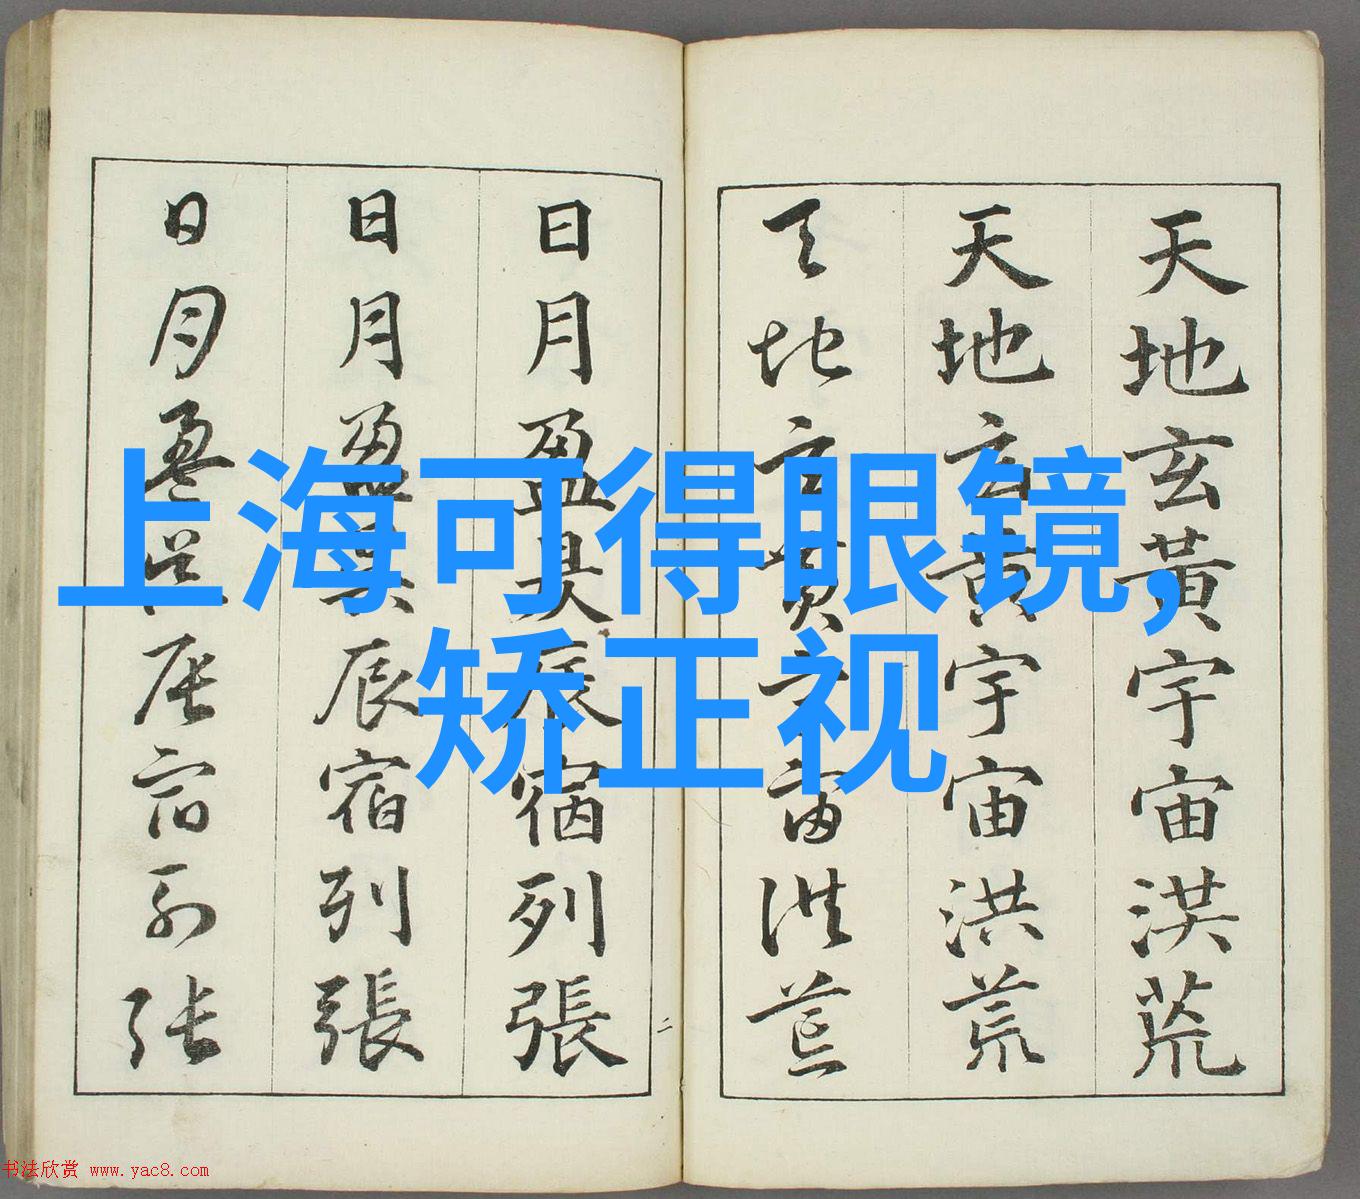 天地玄黃宇宙洪荒
天地玄黃宇宙洪荒
天地玄黃宇宙洪荒
日月盈昃辰宿列張
日月盈昃辰宿列張
日月盈昃辰宿列張
二
上海可得眼镜,
矫正视
书法欣赏 www.yac8.com